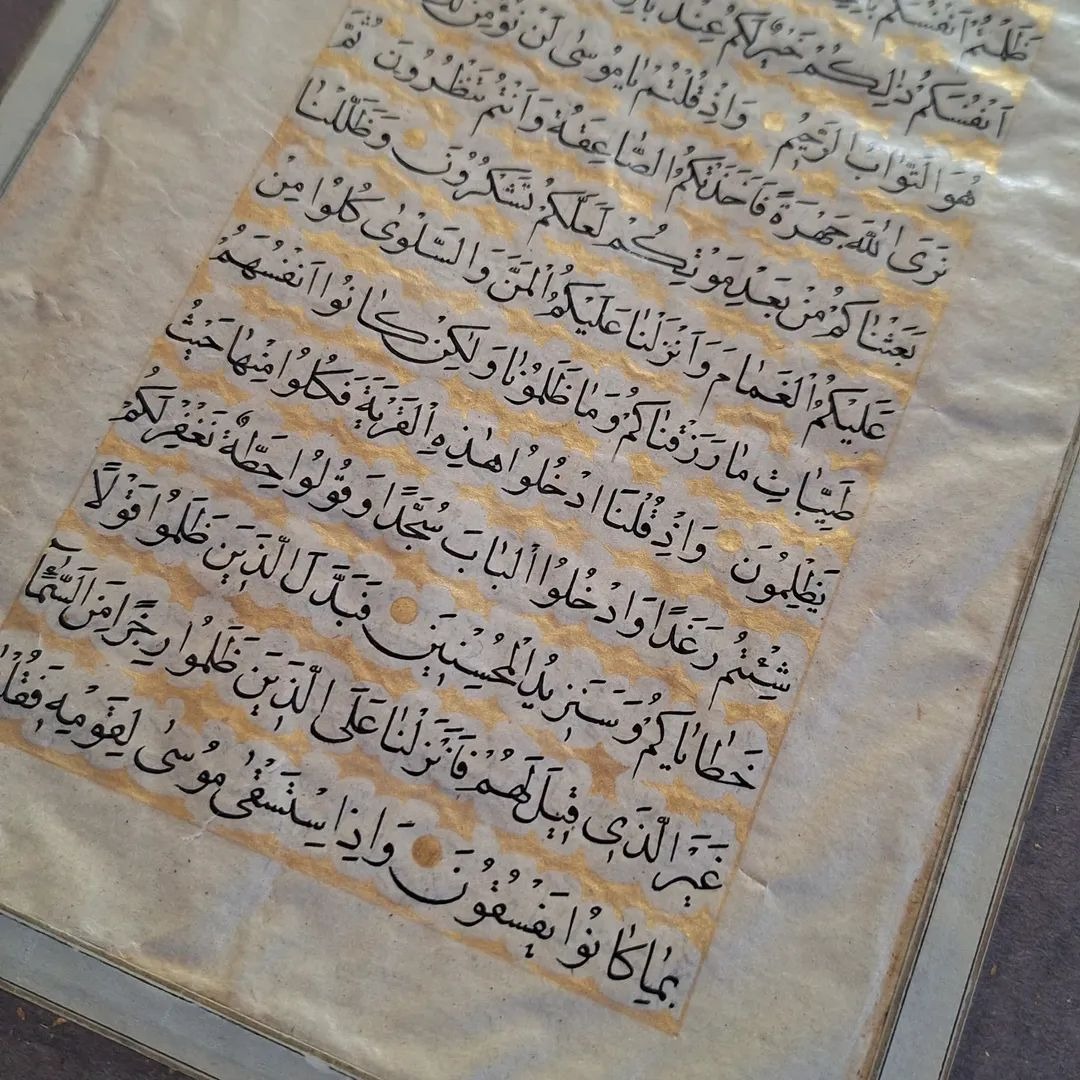 ظَلَمْتُمْ اَنْفُسَكُمْ
اَنْفُسَكُمْ ذٰلِكُمْ خَيْرٌ لَكُمْ عِنْدَ
هُوَ التَّوَّابُ الرَّحِيمُ وَاِذْ قُلْتُمْ يَا مُوسٰى لَنْ نُؤْمِنَ
نَرَى اللّٰهَ جَهْرَةً فَاَخَذَتْكُمُ الصَّاعِقَةُ وَاَنْتُمْ تَنْظُرُونَ ثُمَّ
بَعَثْنَاكُمْ مِنْ بَعْدِ مَوْتِكُمْ لَعَلَّكُمْ تَشْكُرُونَ وَظَلَّلْنَا
عَلَيْكُمُ الْغَمَامَ وَاَنْزَلْنَا عَلَيْكُمُ الْمَنَّ وَالسَّلْوٰى كُلُوا مِنْ
طَيِّبَاتِ مَا رَزَقْنَاكُمْ وَمَا ظَلَمُونَا وَلٰكِنْ كَانُوا اَنْفُسَهُمْ
يَظْلِمُونَ وَاِذْ قُلْنَا ادْخُلُوا هٰذِهِ الْقَرْيَةَ فَكُلُوا مِنْهَا حَيْثُ
شِئْتُمْ رَغَدًا وَادْخُلُوا الْبَابَ سُجَّدًا وَقُولُوا حِطَّةٌ نَغْفِرْ لَكُمْ
خَطَايَاكُمْ وَسَنَزِيدُ الْمُحْسِنِينَ فَبَدَّلَ الَّذِينَ ظَلَمُوا قَوْلًا
غَيْرَ الَّذِي قِيلَ لَهُمْ فَاَنْزَلْنَا عَلَى الَّذِينَ ظَلَمُوا رِجْزًا مِنَ السَّمَٓاءِ
بِمَا كَانُوا يَفْسُقُونَ وَاِذِ اسْتَسْقٰى مُوسٰى لِقَوْمِهِ فَقُلْنَا